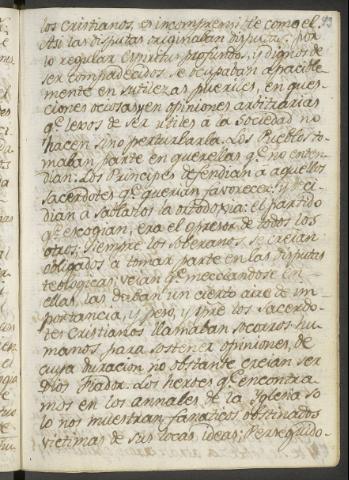 los Cristianos, es incomprensible como el
Asi las disputas originaban disputas. por
lo regular Espiritus profundos, y dignos de
ser compadecidos, se ocupaban apacible
mente en sutilezas pueriles, en ques-
ciones ociosas y en opiniones arbitrarias
qe. lexos de ser utiles a la Sociedad no
hacen sino perturbarla. Los Pueblos to
maban parte en querellas qe. no enten
dian: Los Principes defendian a aquellos
Sacerdotes qe. querian favorecer: y deci-
dian a sablazos la ortodoxia: el partido
qe. escogian, era el opresor de todos los
otros: siempre los soberanos se creian
obligados a tomar parte en las disputas
teologicas; veian qe. mezclandose en
ellas, las daban un cierto aire de im
portancia, y peso, y spre. los Sacerdo-
tes Cristianos llamaban socorros hu
manos, para sostener opiniones, de
cuya duracion no obstante creian ser
Dios fiador. Los herexes qe. encontra-
mos en los annales de la Iglesia so
lo nos muestran fanaticos obstinados
victimas de sus locas ideas; Perseguido-